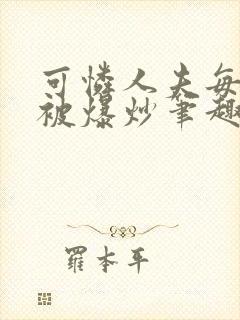 可憐人夫每
被爆炒筆趣
羅本平